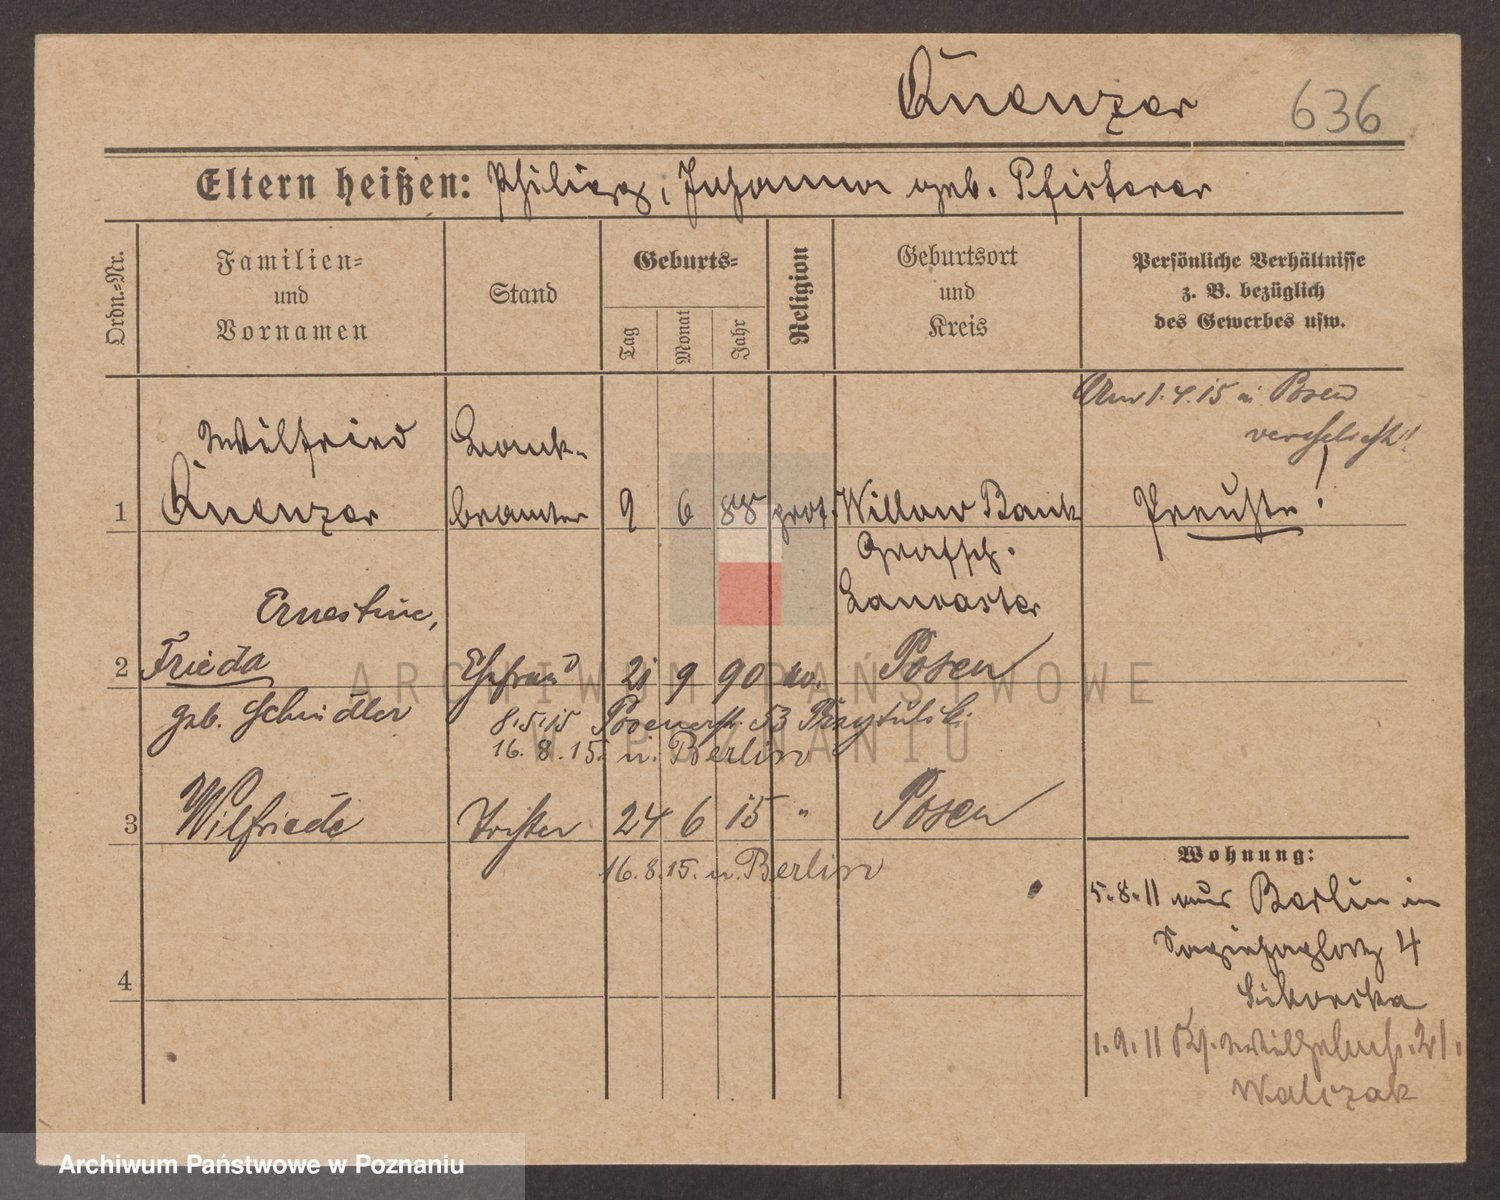 Quenzer 636
Eltern heißen: Philipp, Johanna geb. Pfisterer
Ordn.-Nr.
Familien-
und
Vornamen
Stand
Geburts-
Tag
Monat
Jahr
Religion
Geburtsort
und
Kreis
Persönliche Verhältnisse
z. B. bezüglich
des Gewerbes usw.
Am 1.4.15 in Posen
verehelicht!
Wilfried Bank-
1 Quenzer beamter 9 6 88 prot. Willow Bank Preuße!
Grafsch.
Lancaster
Ernestine,
2 Frieda Ehefrau 21 9 90 ev. Posen
geb. Schindler
8.5.15 Posenerstr. 53
16.8.15. n. Berlin
3 Wilfriede Tochter 24 6 15 " Posen
16.8.15. n. Berlin
4
Wohnung:
5.8.11 aus Berlin in
Sapiehaplatz 4
Sikorska
1.9.11 Wilhelmstr. 21.
Walczak
ARCHIWUM PAŃSTWOWE
W POZNANIU
Archiwum Państwowe w Poznaniu